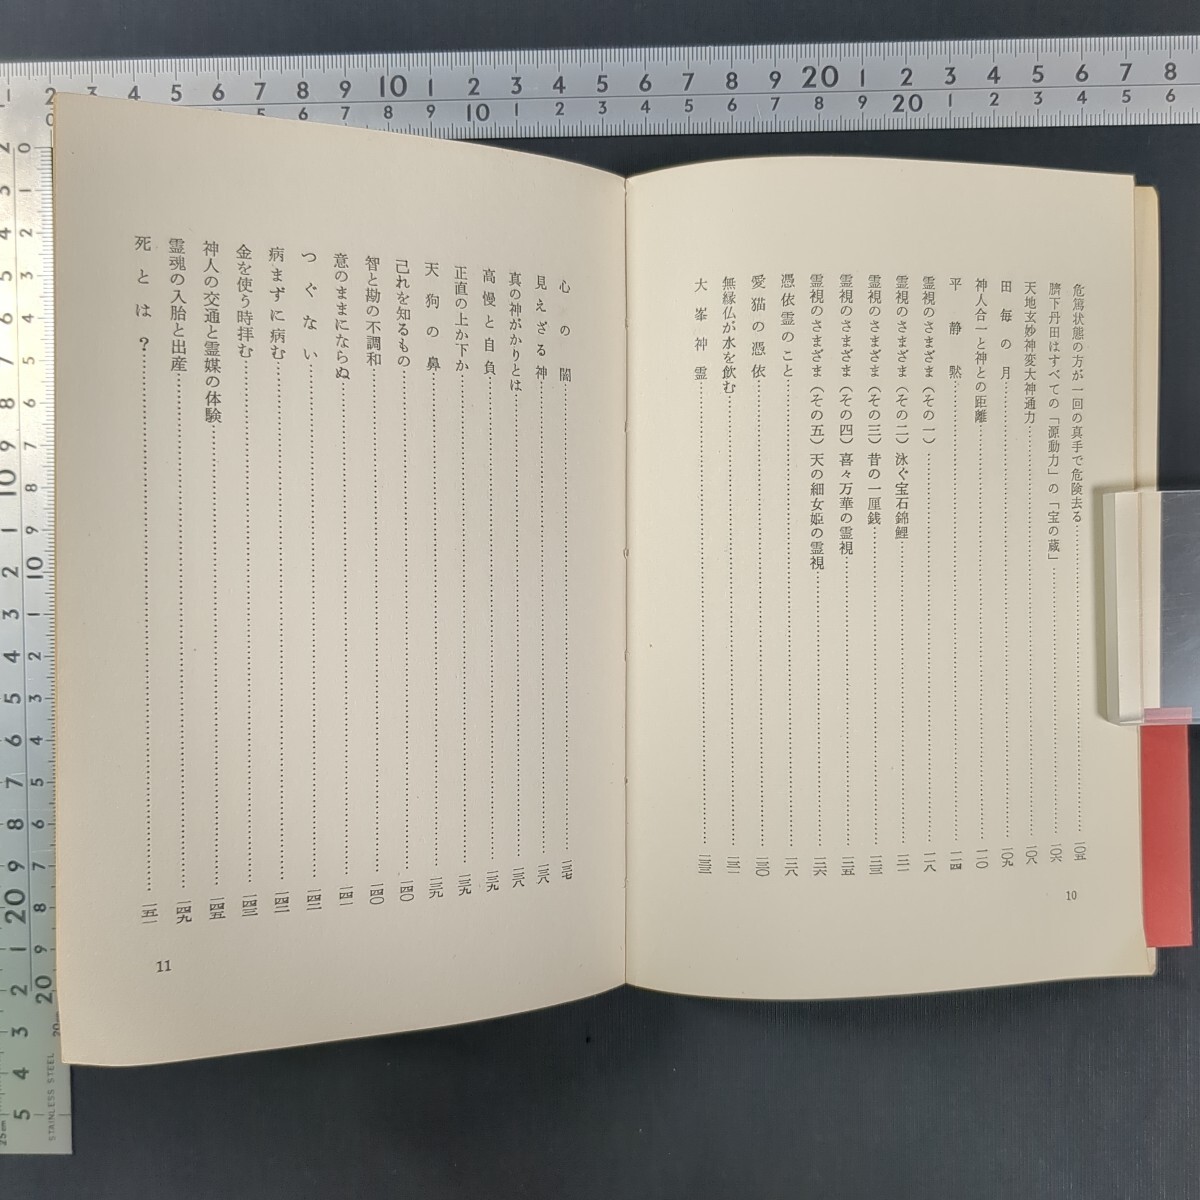 危篤状態の方が一回の真手で危険去る……一〇五
臍下丹田はすべての「源動力」の「宝の蔵」……一〇六
天地玄妙神変大神通力……一〇八
田毎の月……一〇九
神人合一と神との距離……一一〇
平静黙……一一四
霊視のさまざま（その一）……一一八
霊視のさまざま（その二）泳ぐ宝石錦鯉……一二一
霊視のさまざま（その三）昔の一厘銭……一二三
霊視のさまざま（その四）喜々万華の霊視……一二五
霊視のさまざま（その五）天の細女姫の霊視……一二六
憑依霊のこと……一二八
愛猫の憑依……一三〇
無縁仏が水を飲む……一三一
大峯神霊……一三三
10
心の闇……一三七
見えざる神……一三八
真の神がかりとは……一三八
高慢と自負……一三九
正直の上か下か……一三九
天狗の鼻……一三九
己れを知るもの……一四〇
智と勘の不調和……一四〇
意のままにならぬ……一四一
つぐない……一四二
病まずに病む……一四二
金を使う時拝む……一四三
神人の交通と霊媒の体験……一四五
霊魂の入胎と出産……一四九
死とは？……一五一
11
STAINLESS STEEL